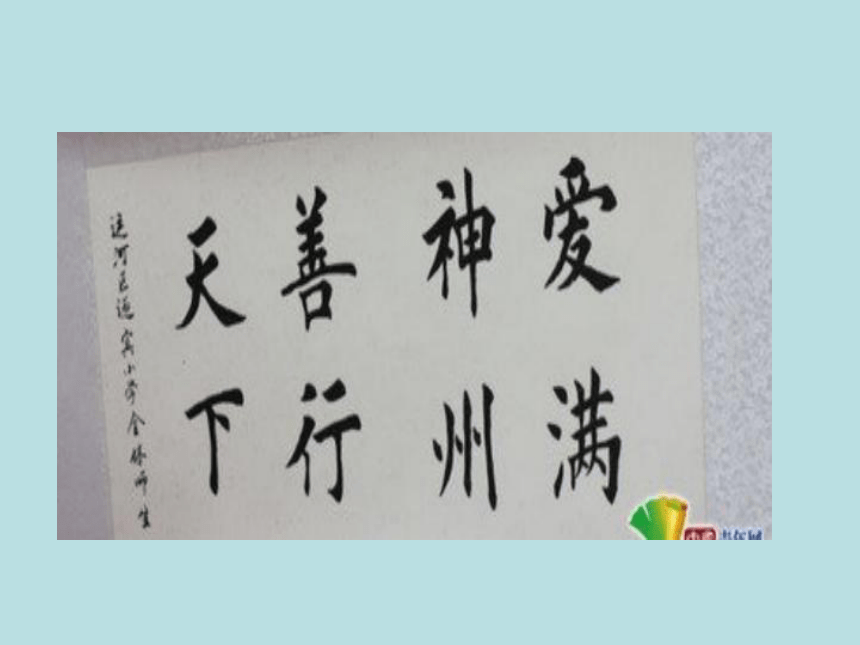 爱满
神州
善行
天下
运河区迎宾小学全体师生